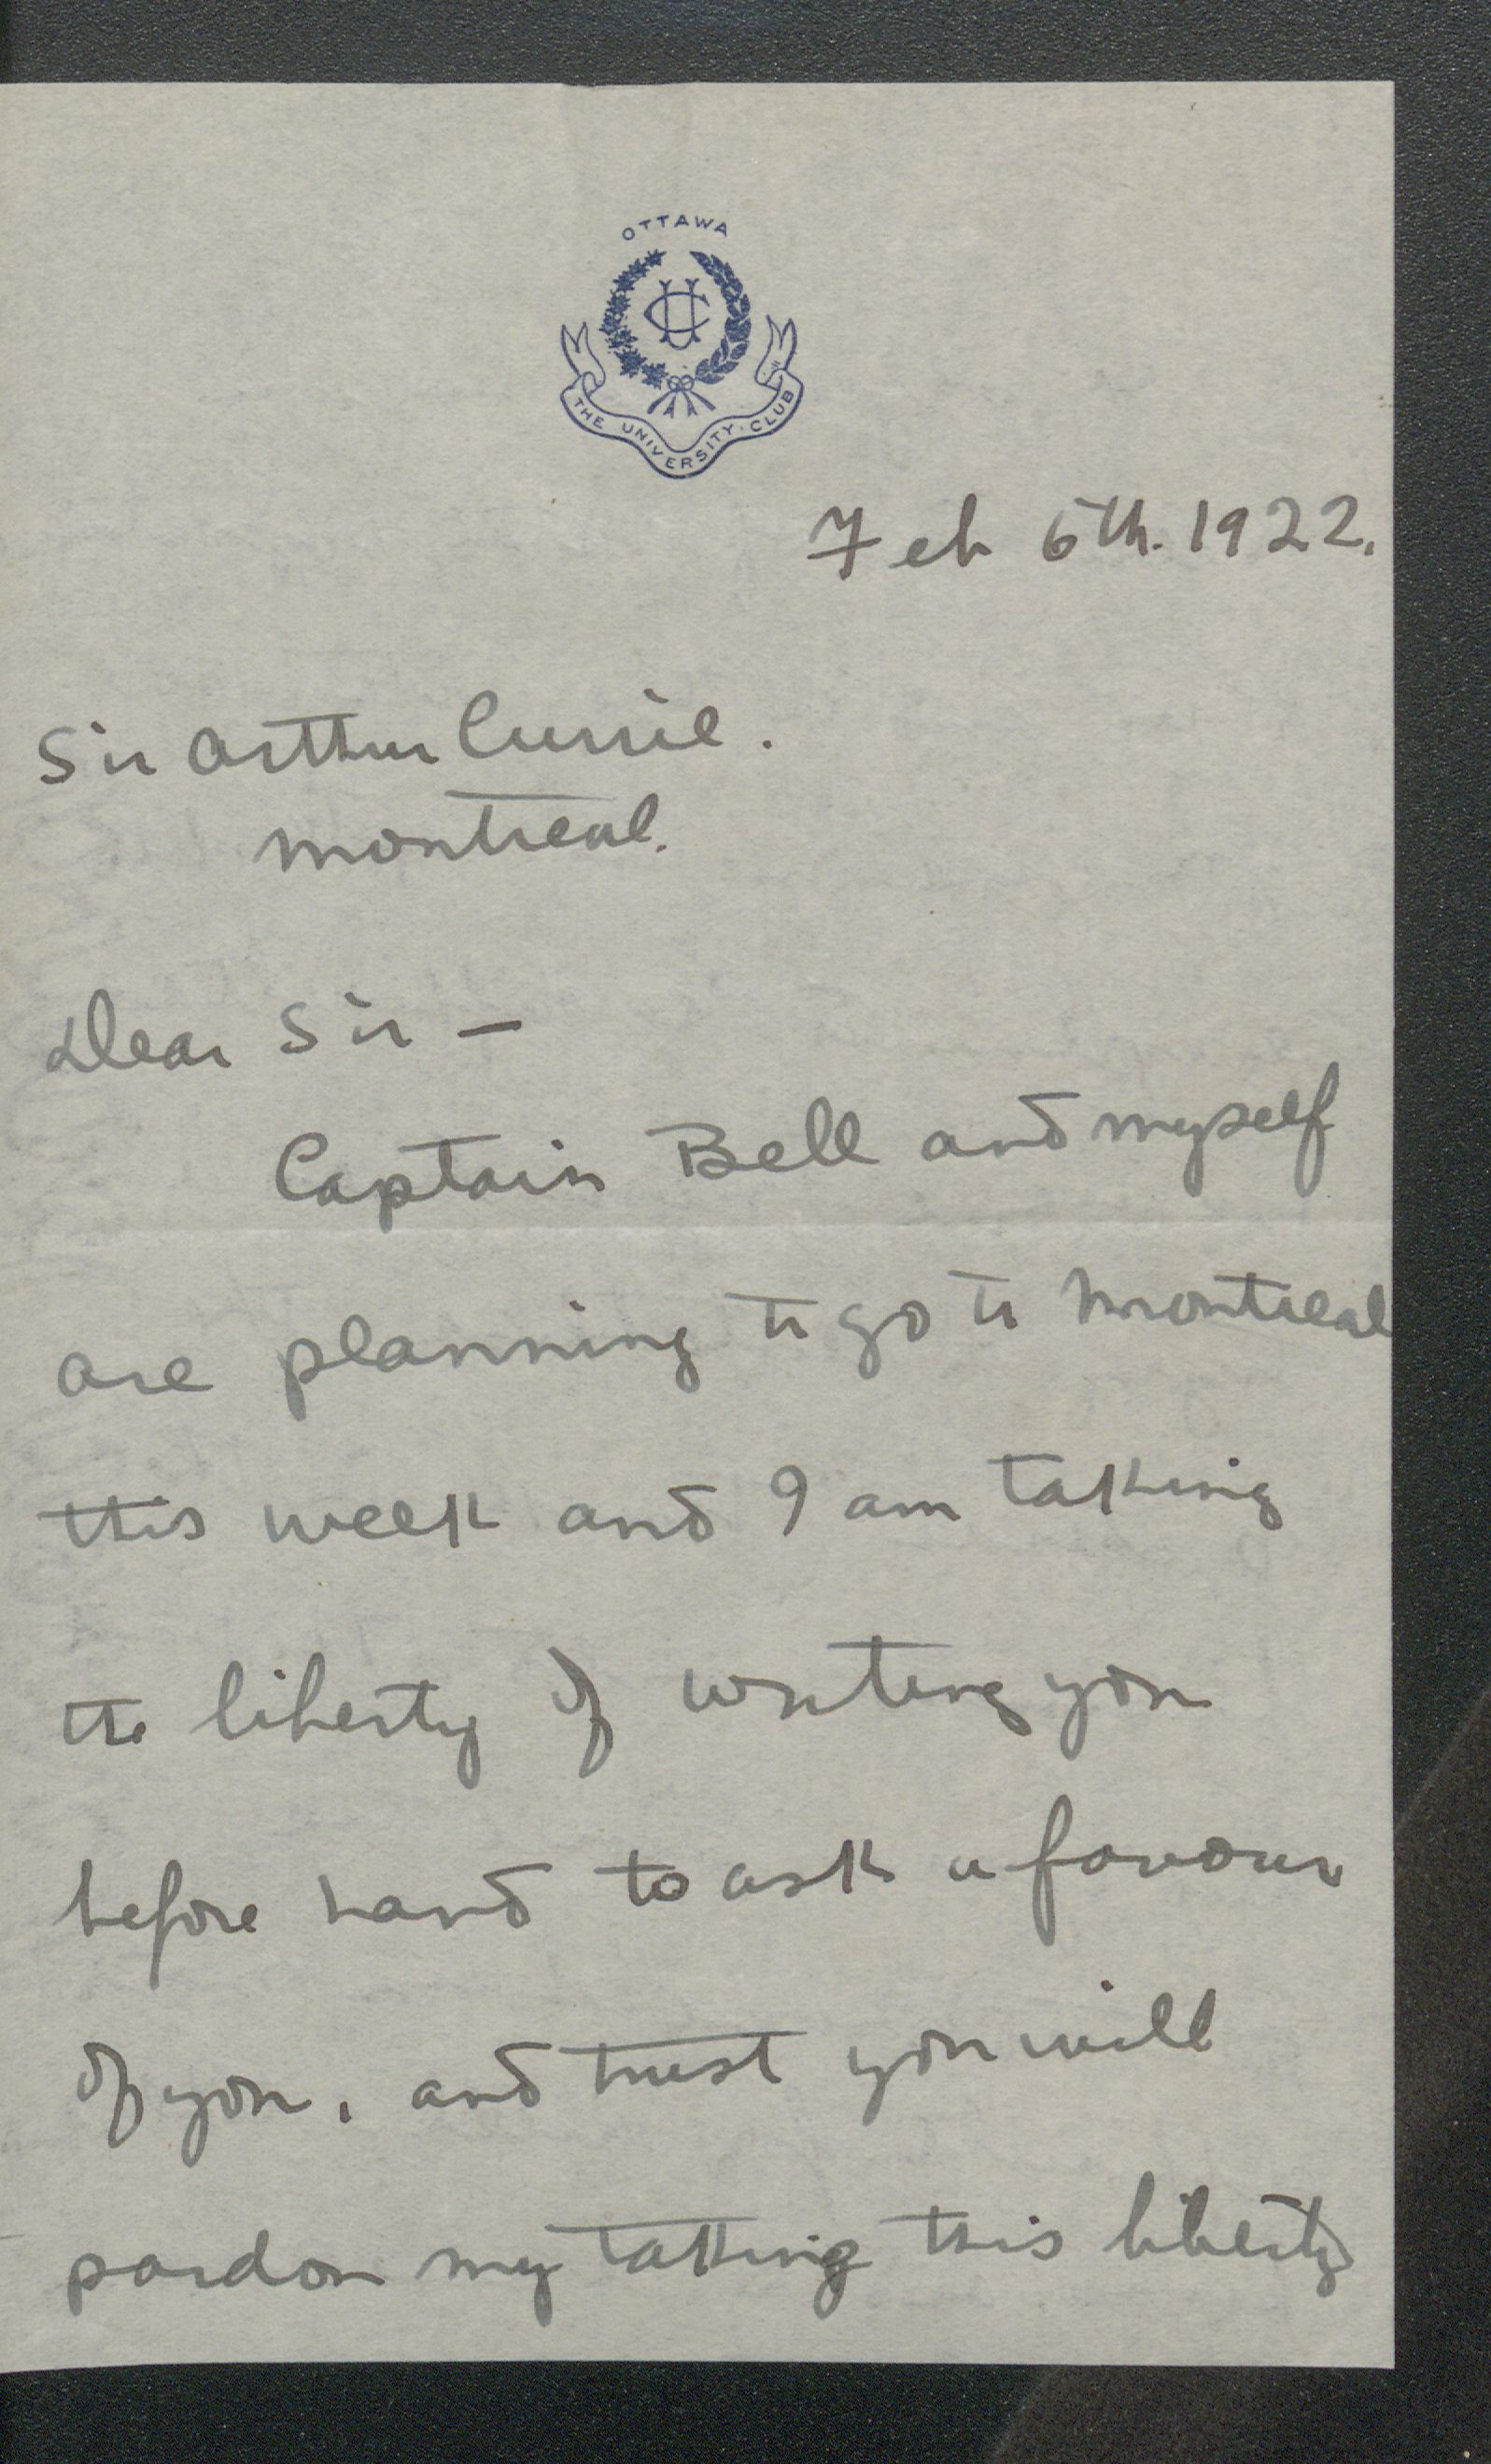 OTTAWA
UC
THE UNIVERSITY · CLUB
Feb 6th. 1922.
Sir Arthur Currie.
Montreal.
Dear Sir —
Captain Bell and myself
are planning to go to Montreal
this week and I am taking
the liberty of writing you
before hand to ask a favour
of you, and trust you will
pardon my taking this liberty